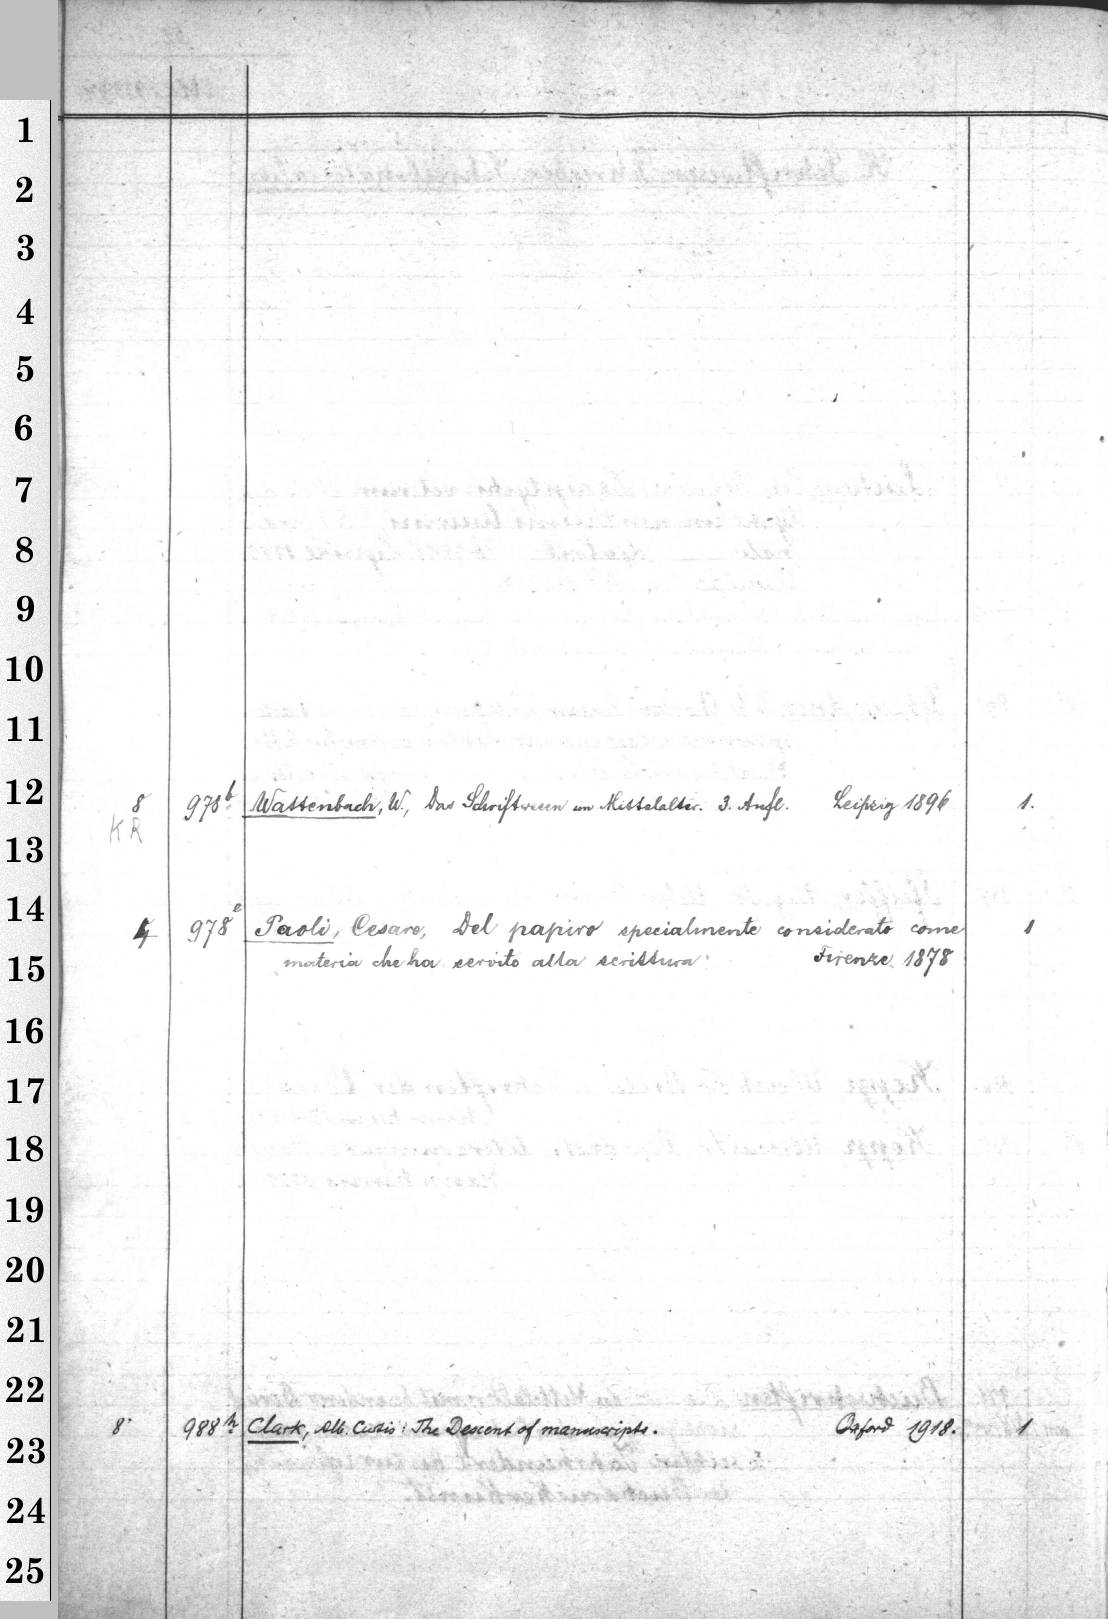 1
2
3
4
5
6
7
8
9
10
11
12
8 978b Wattenbach, W., Das Schriftwesen im Mittelalter. 3. Aufl. Leipzig 1896 1.
KR
13
14
4 978e Paoli, Cesare, Del papiro specialmente considerato come 1
materia che ha servito alla scrittura. Firenze 1878
15
16
17
18
19
20
21
22
8° 988h Clark, Alb. Curtis: The Descent of manuscripts. Oxford 1918. 1
23
24
25